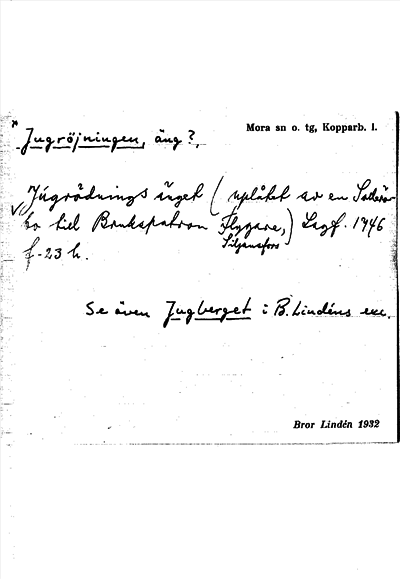 Mora sn o. tg, Kopparb. l.
Jugröjningen, äng?
Jugrödnings änget (uplåtet av en
to til Brukspatron Flygare,) Lagf. 1746
Siljansfors
f. 23 h.
Se även Jugberget i B. Lindéns exc.
Bror Lindén 1932